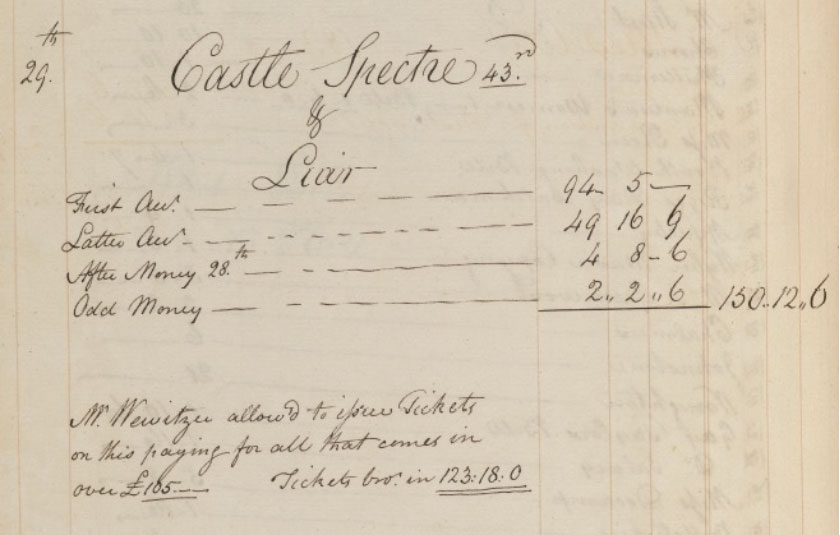 29.th
Castle Spectre 43.rd
&
Liar
First Acc.t — — — — — 94 5 —
Latter Acc.t — — — — — 49 16 6
After Money 28.th — — — — 4 8 - 6
Odd Money — — — — 2 " 2 " 6 150 .. 12 " 6
Mr. Wewitzer allow'd to issue Tickets
on this paying for all that comes in
over £105 .—— Tickets bro.t in 123:18:0